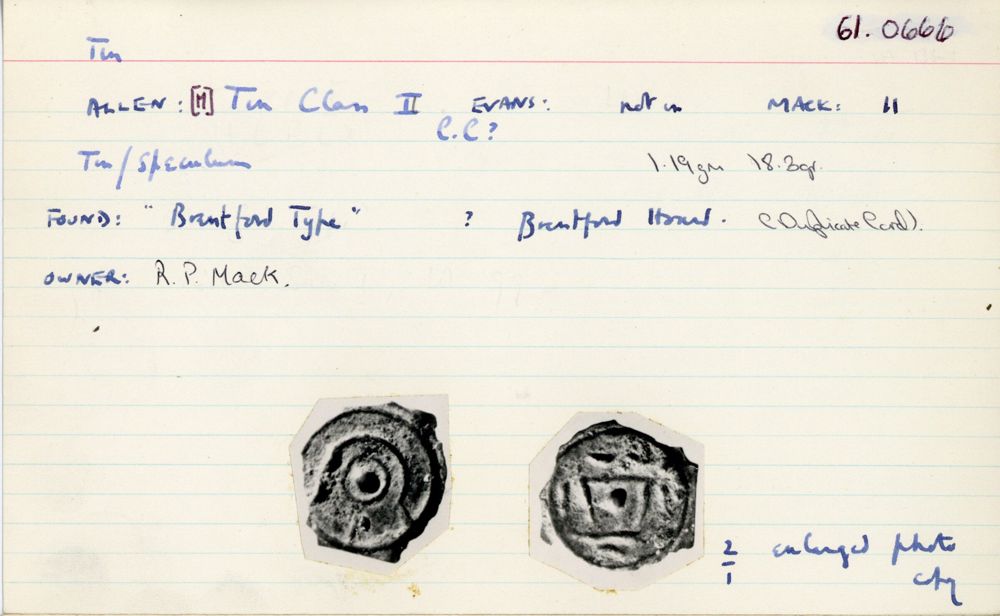 61.0666
Tin
ALLEN: [M] Tin Class II EVANS: not in MACK: 11
C.C?
Tin/Speculum 1.19gm 18.3gr.
FOUND: "Brentford Type" ? Brentford Hoard. (Duplicate Card).
OWNER: R.P. Mack.
2/1 enlarged photo